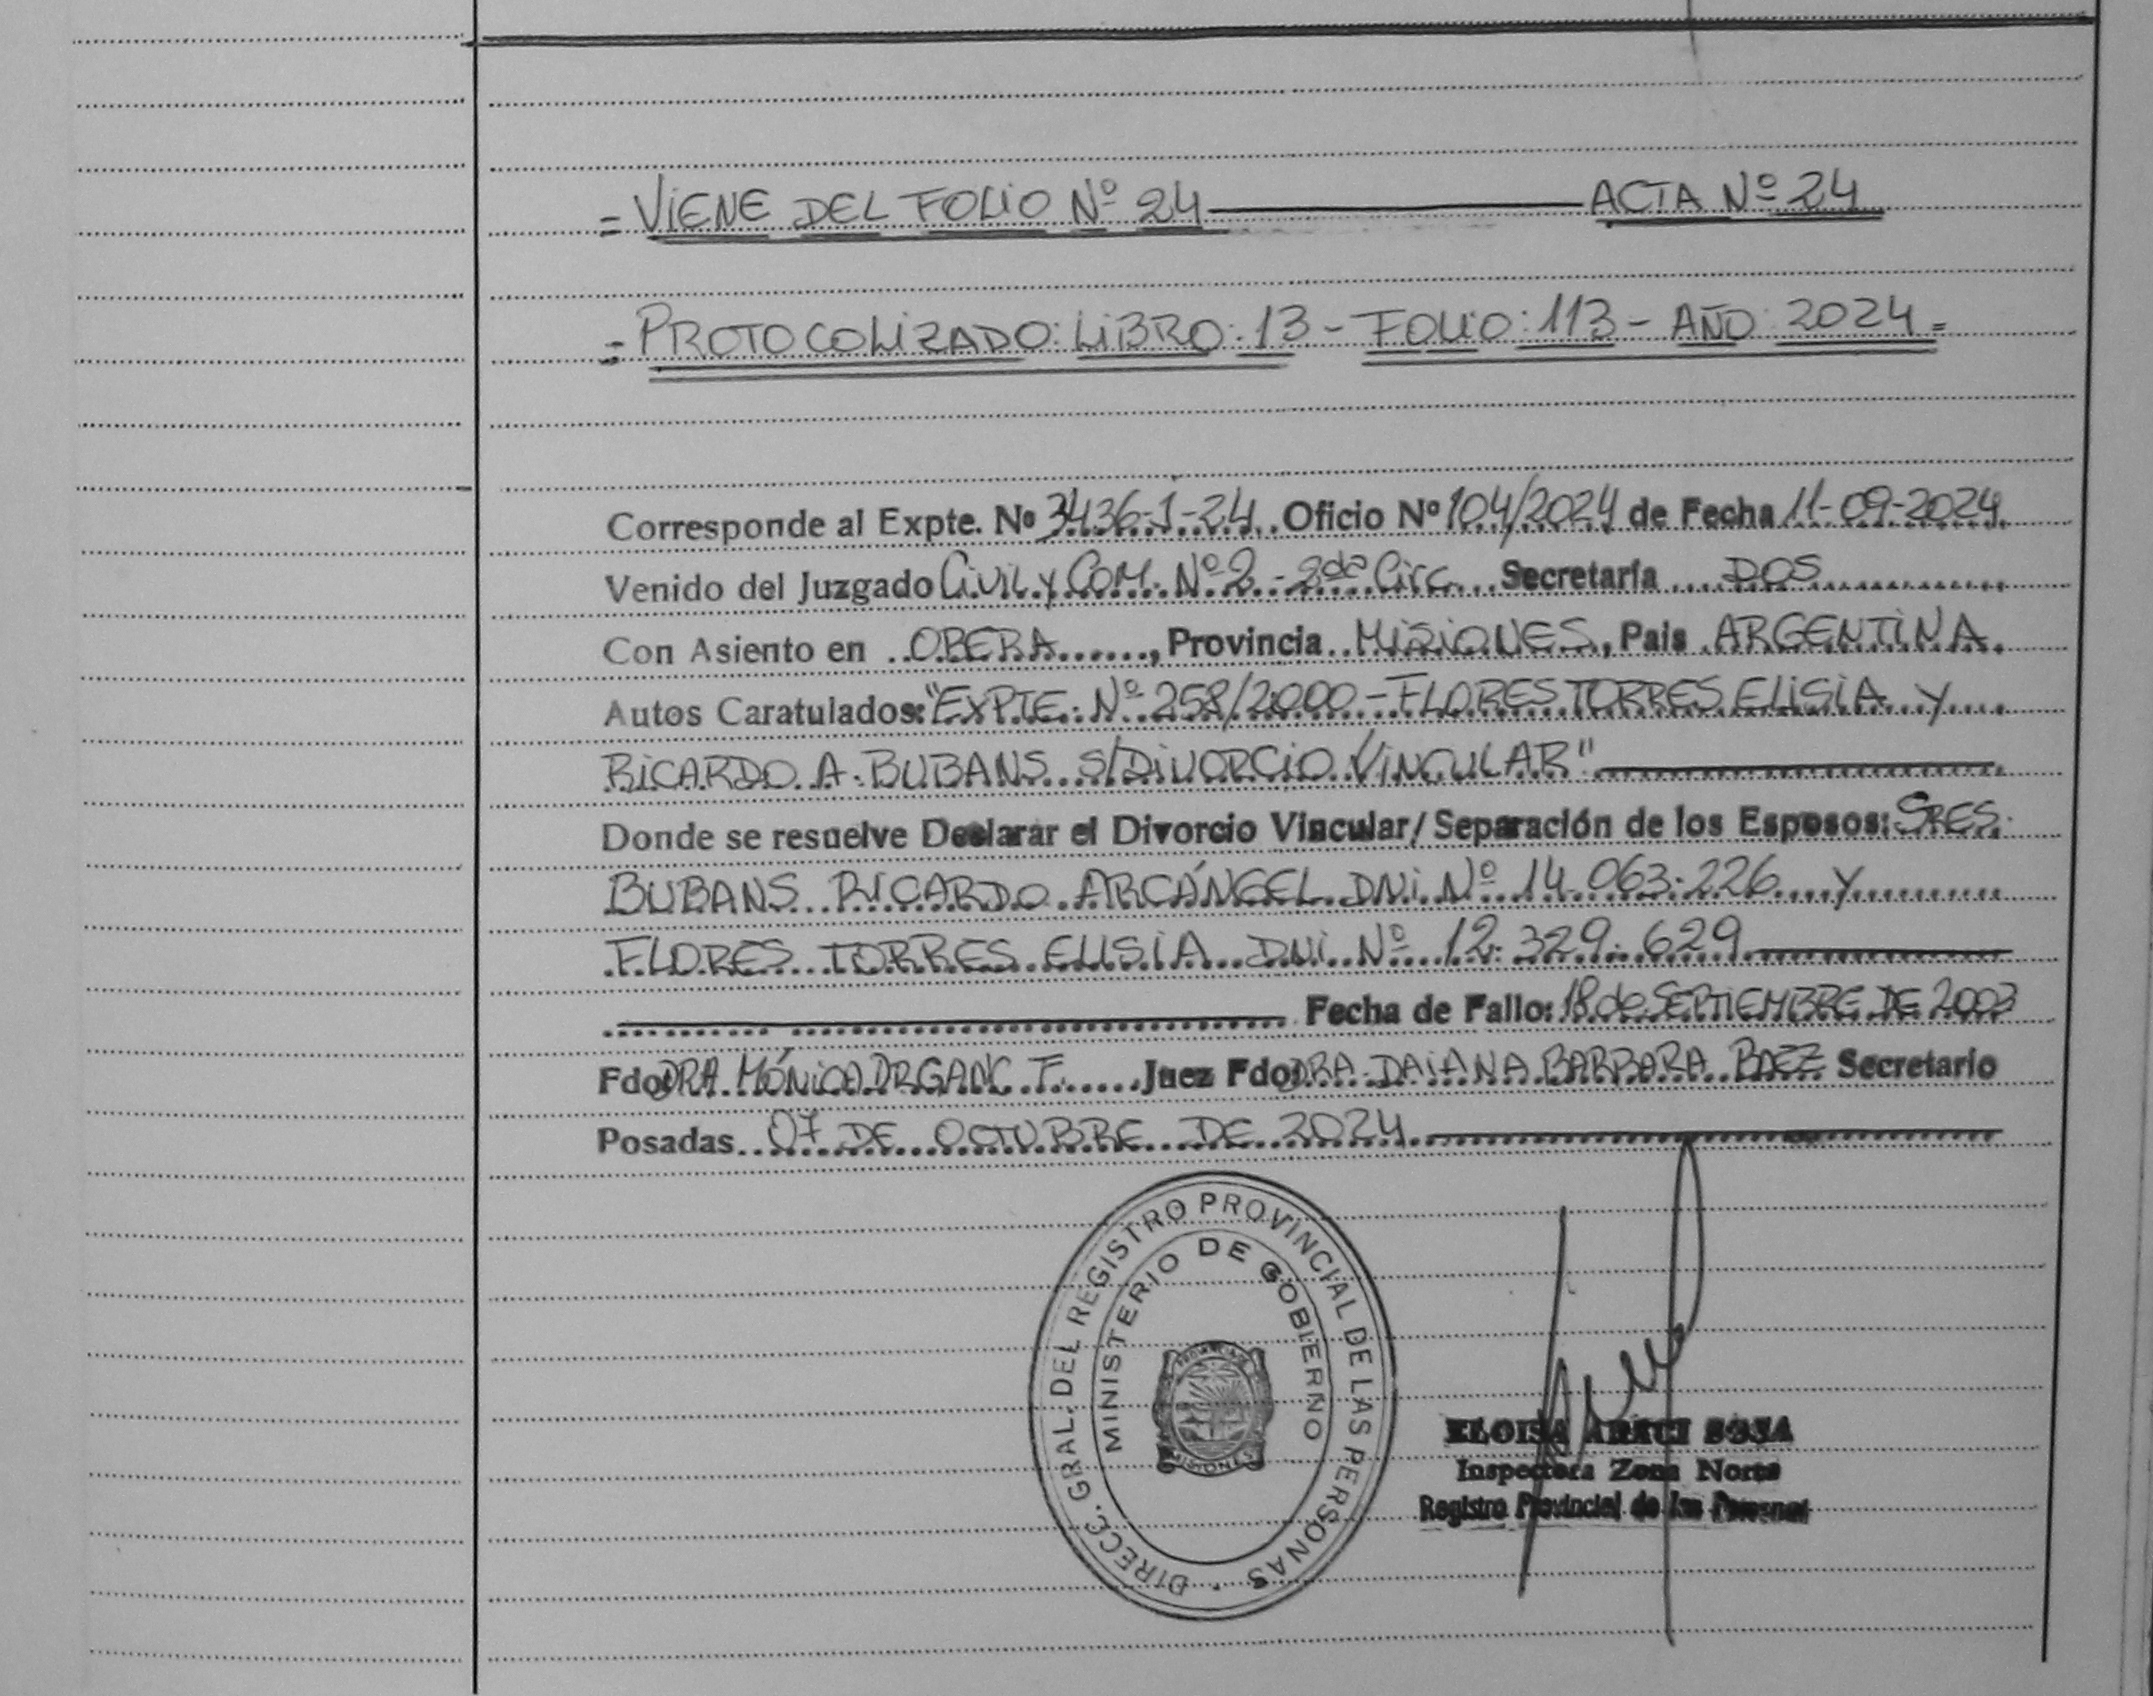 = VIENE DEL FOLIO Nº 24 ACTA Nº 24
= PROTOCOLIZADO: LIBRO: 13 - FOLIO: 113 - AÑO: 2024 =
Corresponde al Expte. Nº 3436-J-24 Oficio Nº 104/2024 de Fecha 11-09-2024
Venido del Juzgado Civil y Com. Nº 2 - 2da Circ. Secretaría DOS
Con Asiento en OBERA, Provincia MISIONES, Pais ARGENTINA.
Autos Caratulados: "EXPTE. Nº 258/2000 - FLORES TORRES ELISIA y
RICARDO A. BUBANS S/DIVORCIO VINCULAR"
Donde se resuelve Declarar el Divorcio Vincular/Separación de los Esposos: SRES.
BUBANS RICARDO ARCÁNGEL DNI Nº 14.063.226 y
FLORES TORRES ELISIA DNI Nº 12.329.629
Fecha de Fallo: 18 de SEPTIEMBRE DE 2003
Fdo: DRA. MÓNICA DRGANC F. Juez Fdo: DRA. DAIANA BARBARA BAEZ Secretario
Posadas 07 DE OCTUBRE DE 2024
DIRECC. GRAL. DEL REGISTRO PROVINCIAL DE LAS PERSONAS
MINISTERIO DE GOBIERNO
MISIONES
ELOISA SOSA
Inspectora Zona Norte
Registro Provincial de las Personas